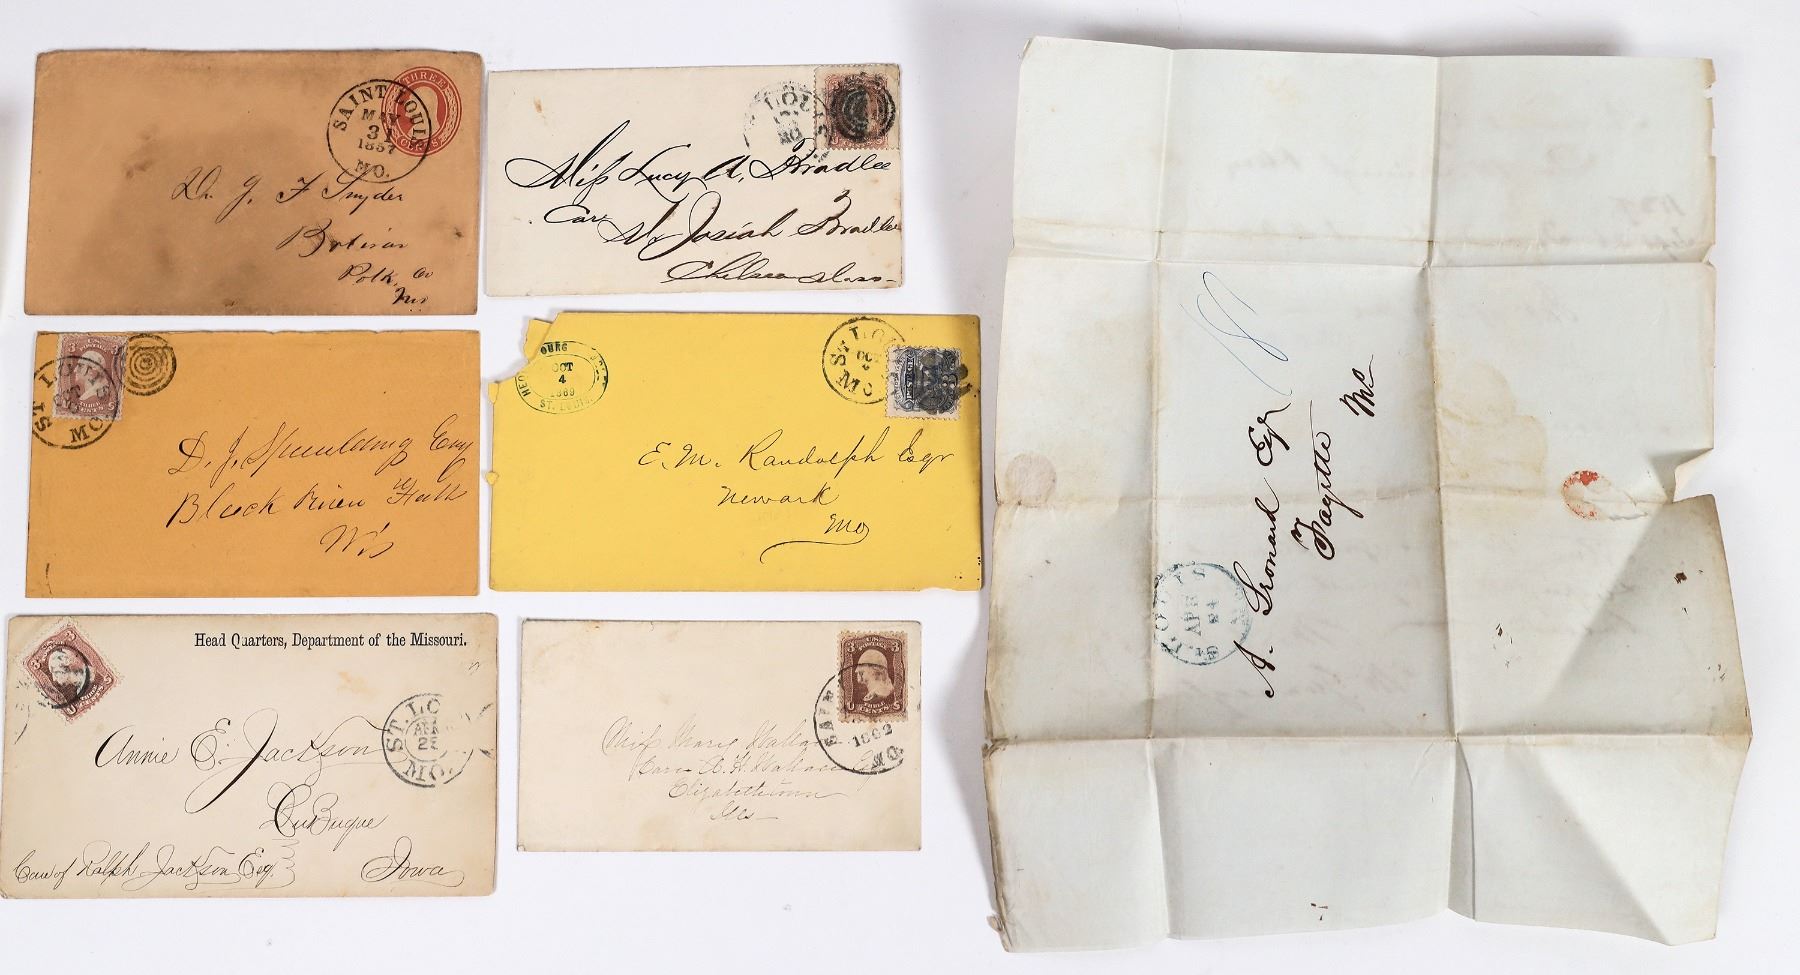 THREE
SAINT LOUIS
MAY
31
1857
MO.
Dr. J. F Snyder
Bolivar
Polk Co
Mo
LOUIS
MO
Miss Lucy A. Bradlee
Care Mr Josiah Bradlee
Chelsea Mass-
3 3
U.S.
POSTAGE
THREE
CENTS
U S
ST LOUIS
MO
D. J. Spaulding Esq
Black River Falls
Wis
OCT
4
1869
ST. LOUIS.
ST LOUIS
OCT
MO
E. M. Randolph Esqr
Newark
Mo
Head Quarters, Department of the Missouri.
3
U S
ST. LO
APR
MO.
Annie E. Jackson
DuBuque
Care of Ralph Jackson Esq.
Iowa
3 3
U.S.
THREE
CENTS
U S
SAIN
1862
MO.
Miss Marie Wallace
Care A. H. Wallace
Elizabethtown
Ills-
18
A. Leonard Eqr
Fayette
Mo
ST. LOUIS
APR
24
MO